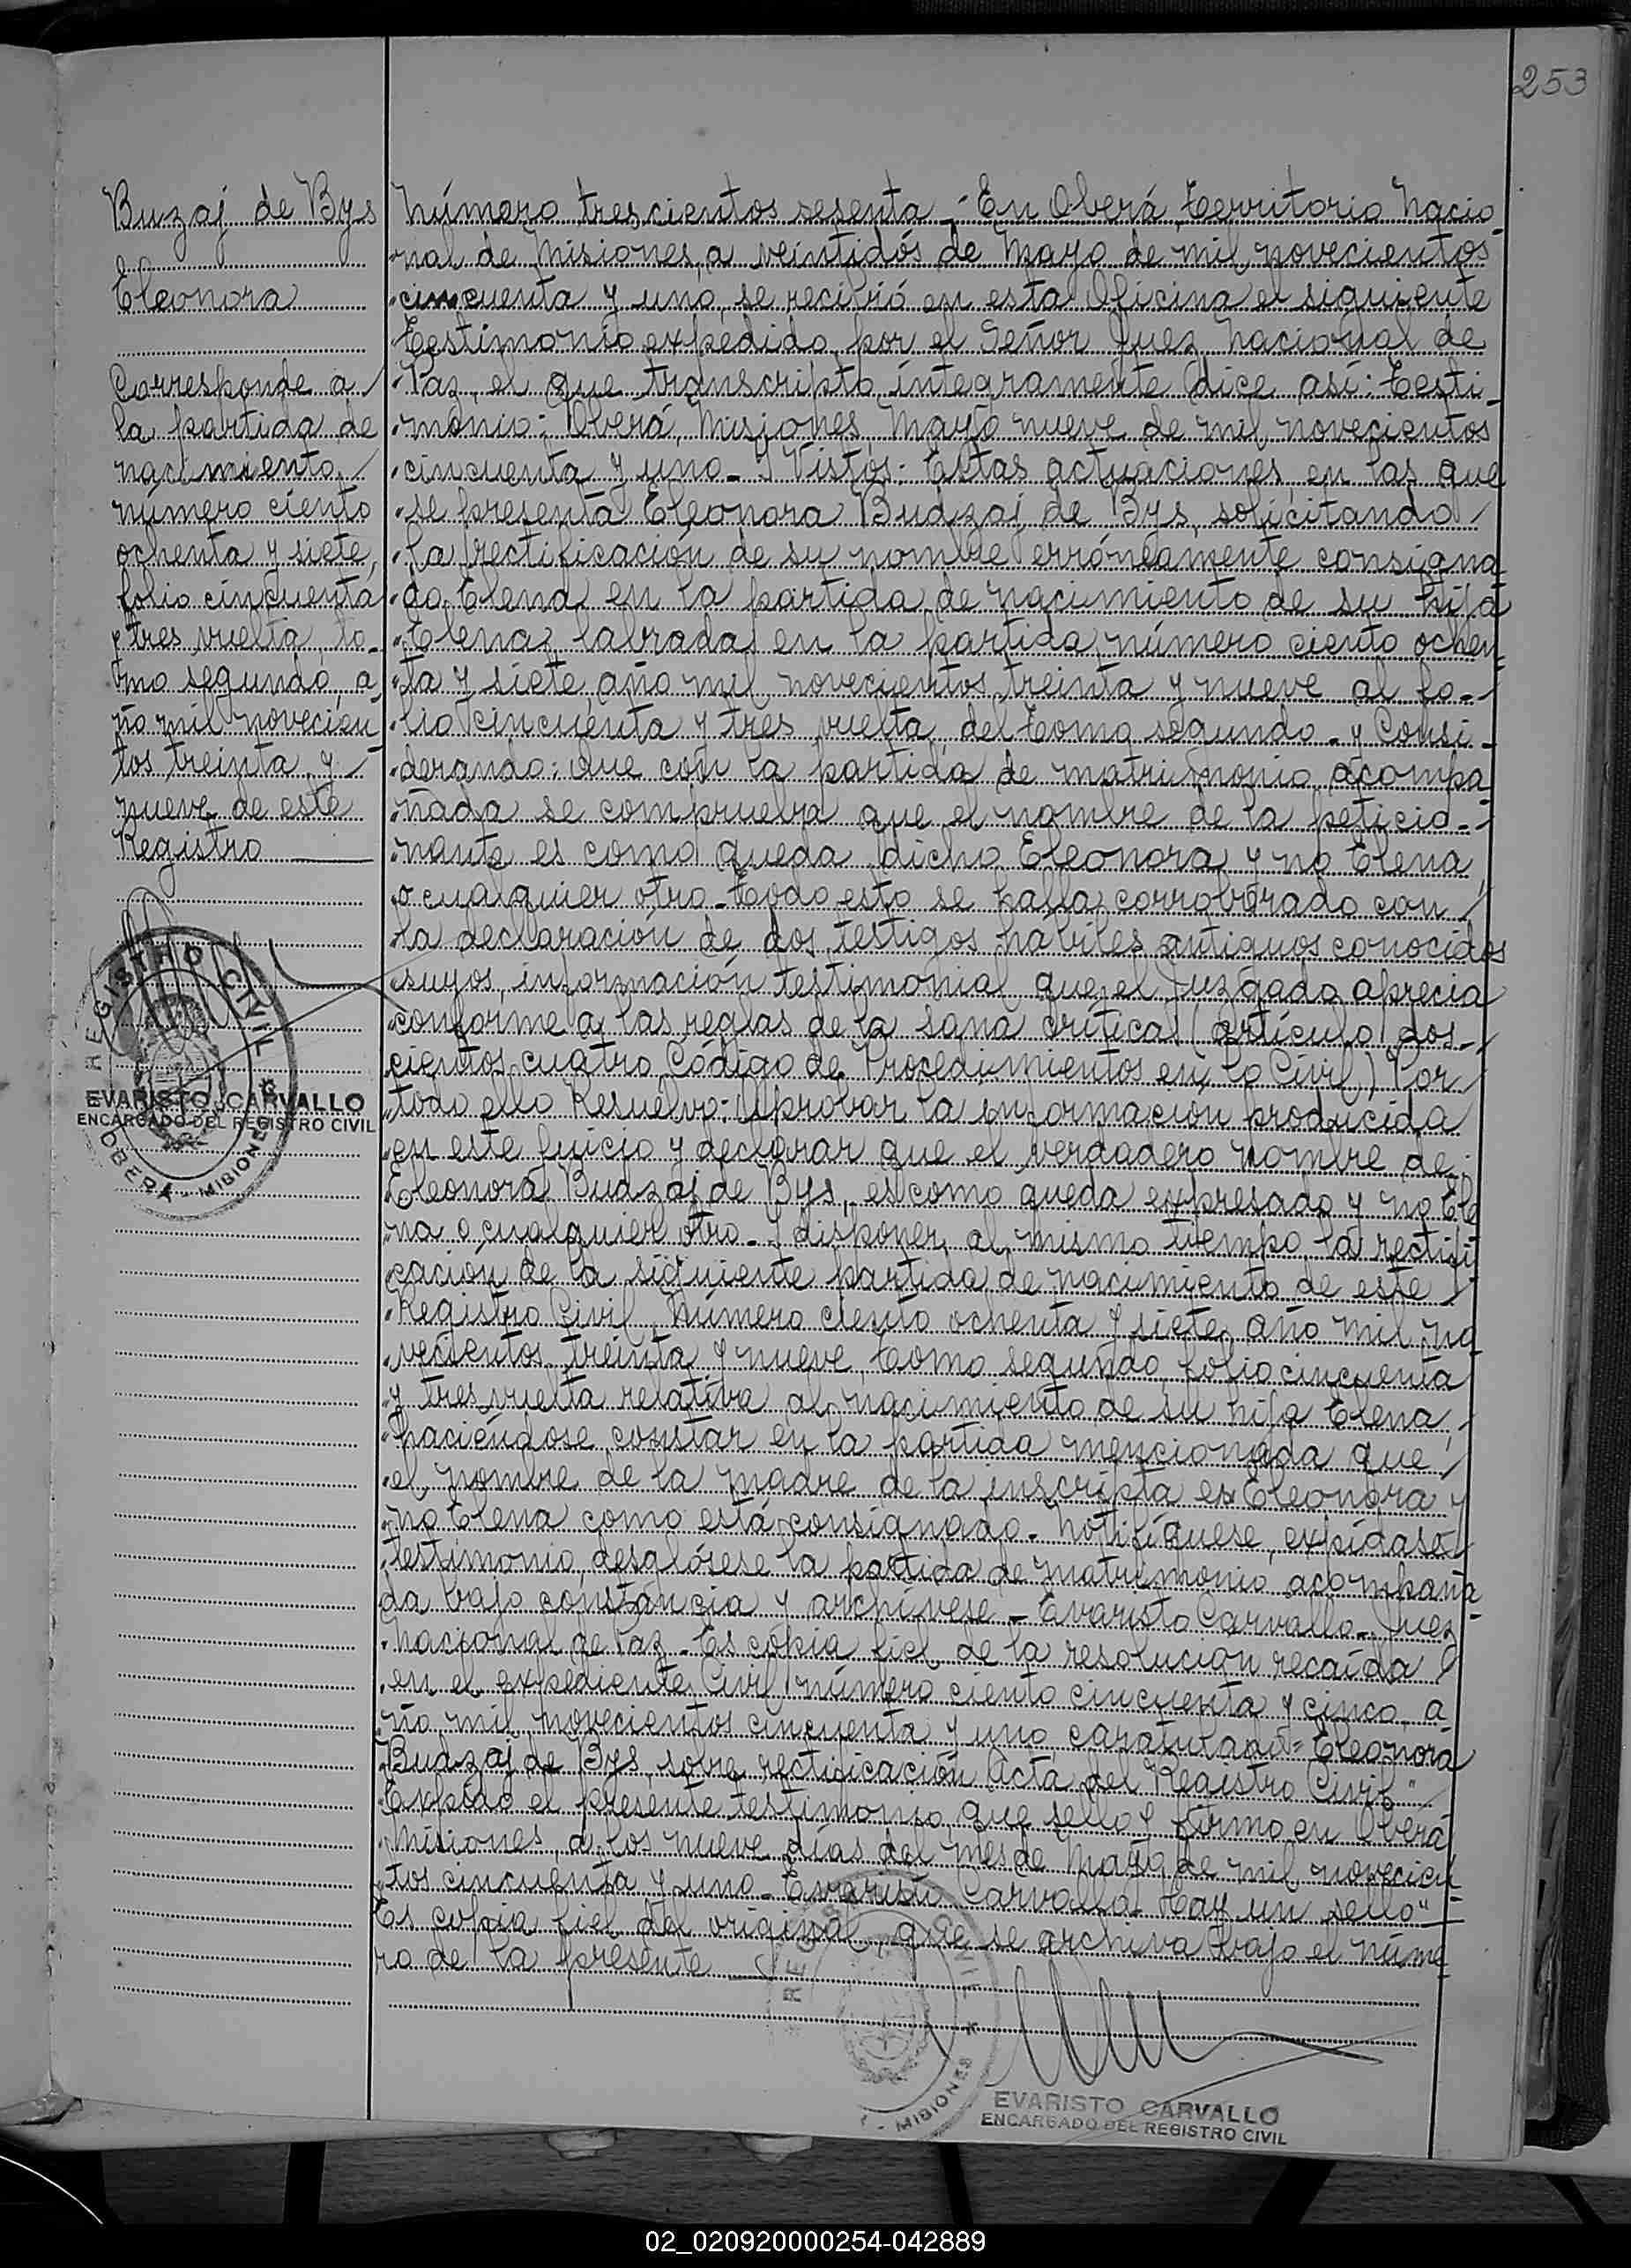 253
Buzaj de Bys
Eleonora
Corresponde a
la partida de
nacimiento
número ciento
ochenta y siete,
folio cincuenta
y tres vuelta, to-
mo segundo, a-
ño mil novecien
tos treinta y
nueve de este
Registro
REGISTRO CIVIL
EVARISTO CARVALLO
ENCARGADO DEL REGISTRO CIVIL
OBERA - MISIONES
Número trescientos sesenta.- En Oberá, Territorio Nacio-
nal de Misiones, a veintidós de Mayo de mil novecientos
cincuenta y uno, se recibió en esta Oficina el siguiente
Testimonio expedido por el Señor Juez Nacional de
Paz, el que transcripto íntegramente dice así: Testi-
monio: Oberá, Misiones, Mayo nueve de mil novecientos
cincuenta y uno.- Y Vistos: Estas actuaciones, en las que
se presenta Eleonora Budzaj de Bys, solicitando
la rectificación de su nombre erróneamente consigna
do Elena en la partida de nacimiento de su hija
Elena, labrada en la partida número ciento ochen-
ta y siete año mil novecientos treinta y nueve al fo-
lio cincuenta y tres vuelta, del Tomo segundo.- y Consi-
derando: Que con la partida de matrimonio acompa
ñada se comprueba que el nombre de la peticio-
nante es como queda dicho Eleonora y no Elena
o cualquier otro.- Todo esto se halla corroborado con
la declaración de dos testigos hábiles antiguos conocidos
suyos, información testimonial que el Juzgado aprecia
conforme a las reglas de la sana crítica (artículo dos-
cientos cuatro Código de Procedimientos en lo Civil) Por
todo ello Resuelvo: Aprobar la información producida
en este juicio y declarar que el verdadero nombre de
Eleonora Budzaj de Bys, es como queda expresado y no Ele
na o cualquier otro.- Y disponer al mismo tiempo la rectifi
cación de la siguiente partida de nacimiento de este
Registro Civil, Número ciento ochenta y siete, año mil no
vecientos treinta y nueve, Tomo segundo, folio cincuenta
y tres vuelta relativa al nacimiento de su hija Elena,
haciéndose constar en la partida mencionada que
el nombre de la madre de la inscripta es Eleonora y
no Elena como está consignado.- Notifíquese, expídase
testimonio, desglósese la partida de matrimonio acompaña-
da bajo constancia y archívese.- Evaristo Carvallo.- Juez
Nacional de Paz.- Es copia fiel de la resolución recaída
en el expediente Civil número ciento cincuenta y cinco, a-
ño mil novecientos cincuenta y uno, caratulado "Eleonora
Budzaj de Bys, sobre rectificación Acta del Registro Civil"
Expido el presente testimonio que sello y firmo en Oberá
Misiones, a los nueve días del mes de Mayo de mil novecien
tos cincuenta y uno.- Evaristo Carvallo.- Hay un sello"
Es copia fiel del original, que se archiva bajo el núme
ro de la presente
- MISIONES
EVARISTO CARVALLO
ENCARGADO DEL REGISTRO CIVIL
02_020920000254-042889